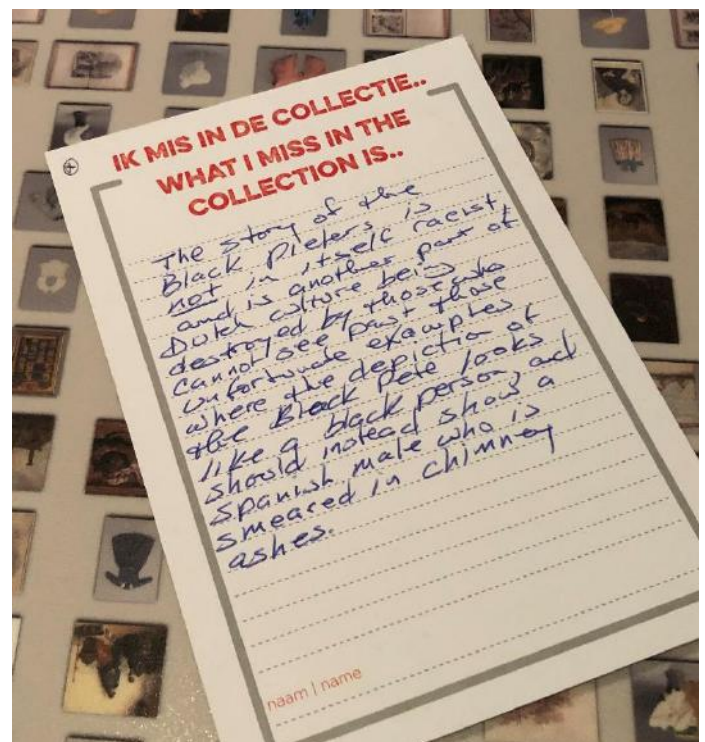 IK MIS IN DE COLLECTIE..
WHAT I MISS IN THE
COLLECTION IS..
The story of the
Black Pieters is
not in itself racist,
and is another part of
Dutch culture being
destroyed by those who
cannot see past those
unfortunate examples
where the depiction of
the Black Pete looks
like a black person, and
should instead show a
Spanish male who is
smeared in chimney
ashes.
naam | name